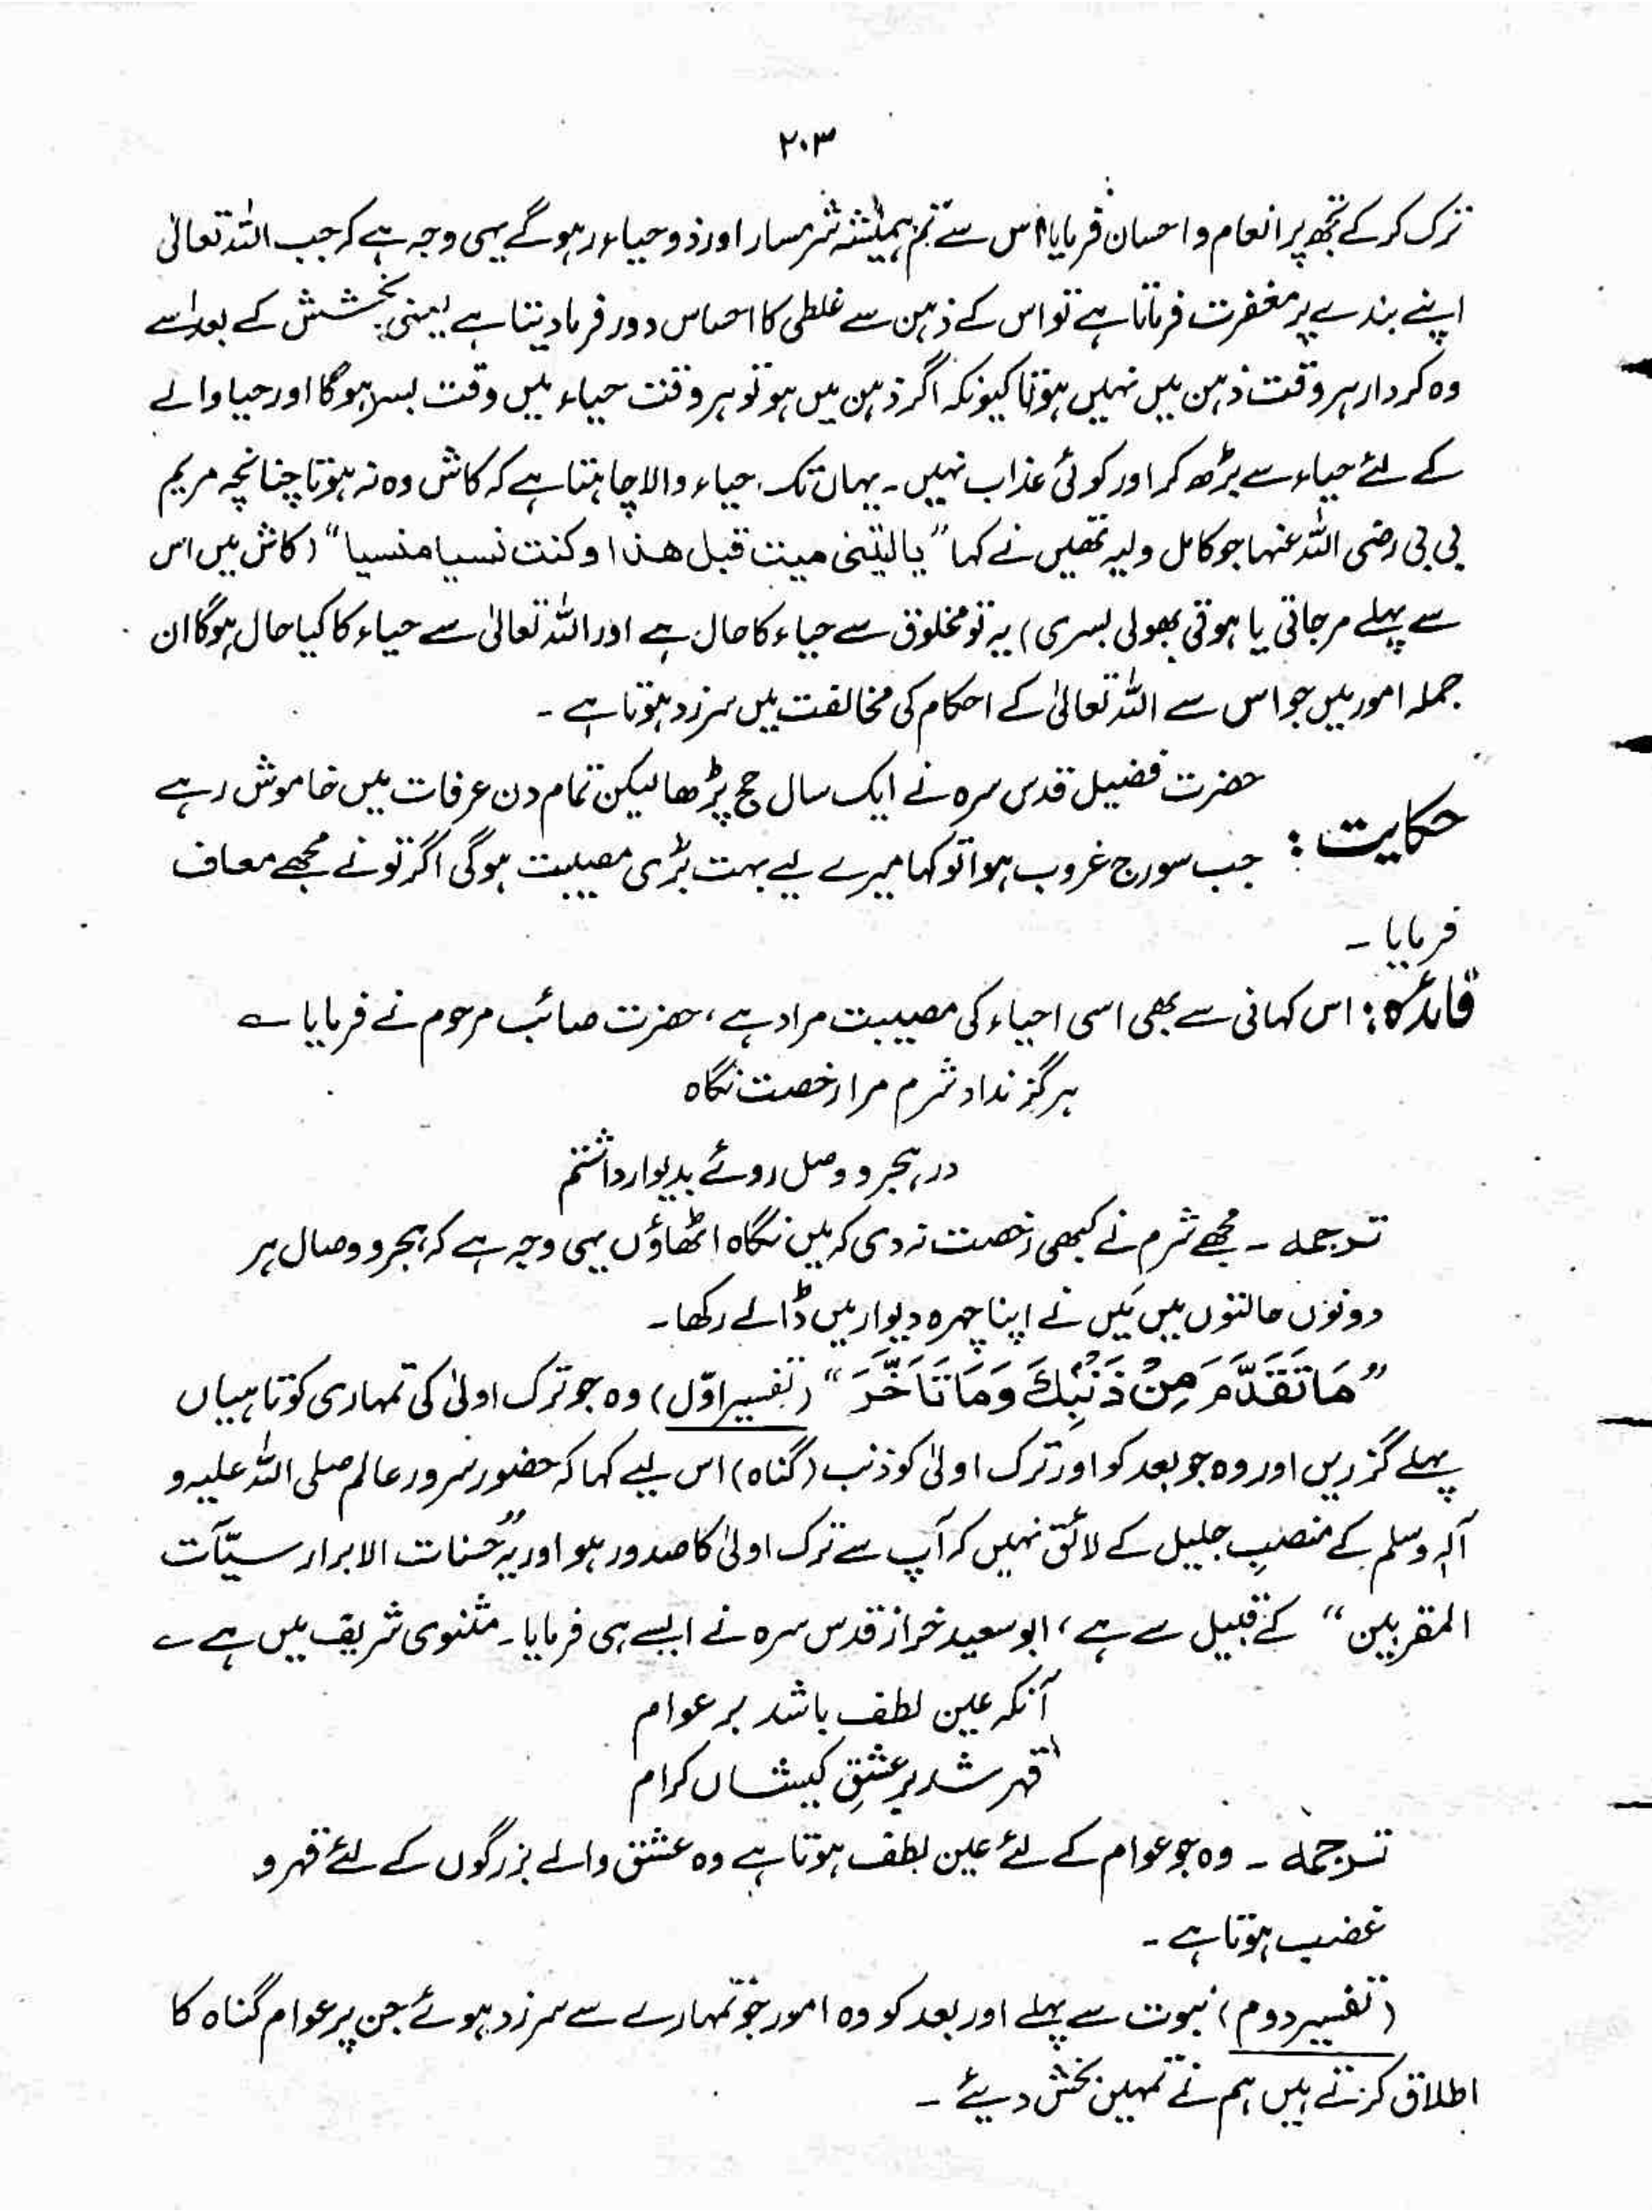 ۲۰۳
ترک کر کے تجھ پر انعام و احسان فرمایا اس سے تم ہمیشہ شرمسار اور ذوحیاء رہو گے یہی وجہ ہے کہ جب اللہ تعالیٰ
اپنے بندے پر مغفرت فرماتا ہے تو اس کے ذہن سے غلطی کا احساس دور فرما دیتا ہے یعنی بخشش کے بعد اسے
وہ کردار ہر وقت ذہن میں نہیں ہوتا کیونکہ اگر ذہن میں ہو تو ہر وقت حیاء میں وقت بسر ہوگا اور حیا والے
کے لئے حیاء سے بڑھ کر اور کوئی عذاب نہیں۔ یہاں تک حیاء والا چاہتا ہے کہ کاش وہ نہ ہوتا چنانچہ مریم
بی بی رضی اللہ عنہا جو کامل ولیہ تھیں نے کہا "یا لیتنی میت قبل ھذا و کنت نسیا منسیا" (کاش میں اس
سے پہلے مر جاتی یا ہوتی بھولی بسری) یہ تو مخلوق سے حیاء کا حال ہے اور اللہ تعالیٰ سے حیاء کا کیا حال ہوگا ان
جملہ امور میں جو اس سے اللہ تعالیٰ کے احکام کی مخالفت میں سرزد ہوتا ہے۔
حکایت: حضرت فضیل قدس سرہ نے ایک سال حج پڑھا لیکن تمام دن عرفات میں خاموش رہے
جب سورج غروب ہوا تو کہا میرے لیے بہت بڑی مصیبت ہوگی اگر تو نے مجھے معاف
فرمایا۔
فائدہ: اس کہانی سے بھی اسی احیاء کی مصیبت مراد ہے، حضرت صائب مرحوم نے فرمایا ؎
ہرگز نداد شرم مرا رخصت نگاہ
در ہجر و وصل روئے بدیوار داشتم
ترجمہ۔ مجھے شرم نے کبھی رخصت نہ دی کہ میں نگاہ اٹھاؤں یہی وجہ ہے کہ ہجر و وصال ہر
دونوں حالتوں میں مَیں نے اپنا چہرہ دیوار میں ڈالے رکھا۔
"مَا تَقَدَّمَ مِنْ ذَنْبِكَ وَمَا تَاَخَّرَ" (تفسیر اوّل) وہ جو ترک اولیٰ کی تمہاری کوتاہیاں
پہلے گزریں اور وہ جو بعد کو اور ترک اولیٰ کو ذنب (گناہ) اس لیے کہا کہ حضور سرور عالم صلی اللہ علیہ و
آلہ وسلم کے منصبِ جلیل کے لائق نہیں کہ آپ سے ترک اولیٰ کا صدور ہو اور یہ "حسنات الابرار سیّآت
المقربین" کے قبیل سے ہے، ابو سعید خراز قدس سرہ نے ایسے ہی فرمایا۔ مثنوی شریف میں ہے ؎
آنکہ عین لطف باشد بر عوام
قہر شد بر عشقِ کیشاں کرام
ترجمہ۔ وہ جو عوام کے لئے عین لطف ہوتا ہے وہ عشق والے بزرگوں کے لئے قہر و
غضب ہوتا ہے۔
(تفسیر دوم) نبوت سے پہلے اور بعد کو وہ امور جو تمہارے سے سرزد ہوئے جن پر عوام گناہ کا
اطلاق کرتے ہیں ہم نے تمہیں بخش دیئے۔